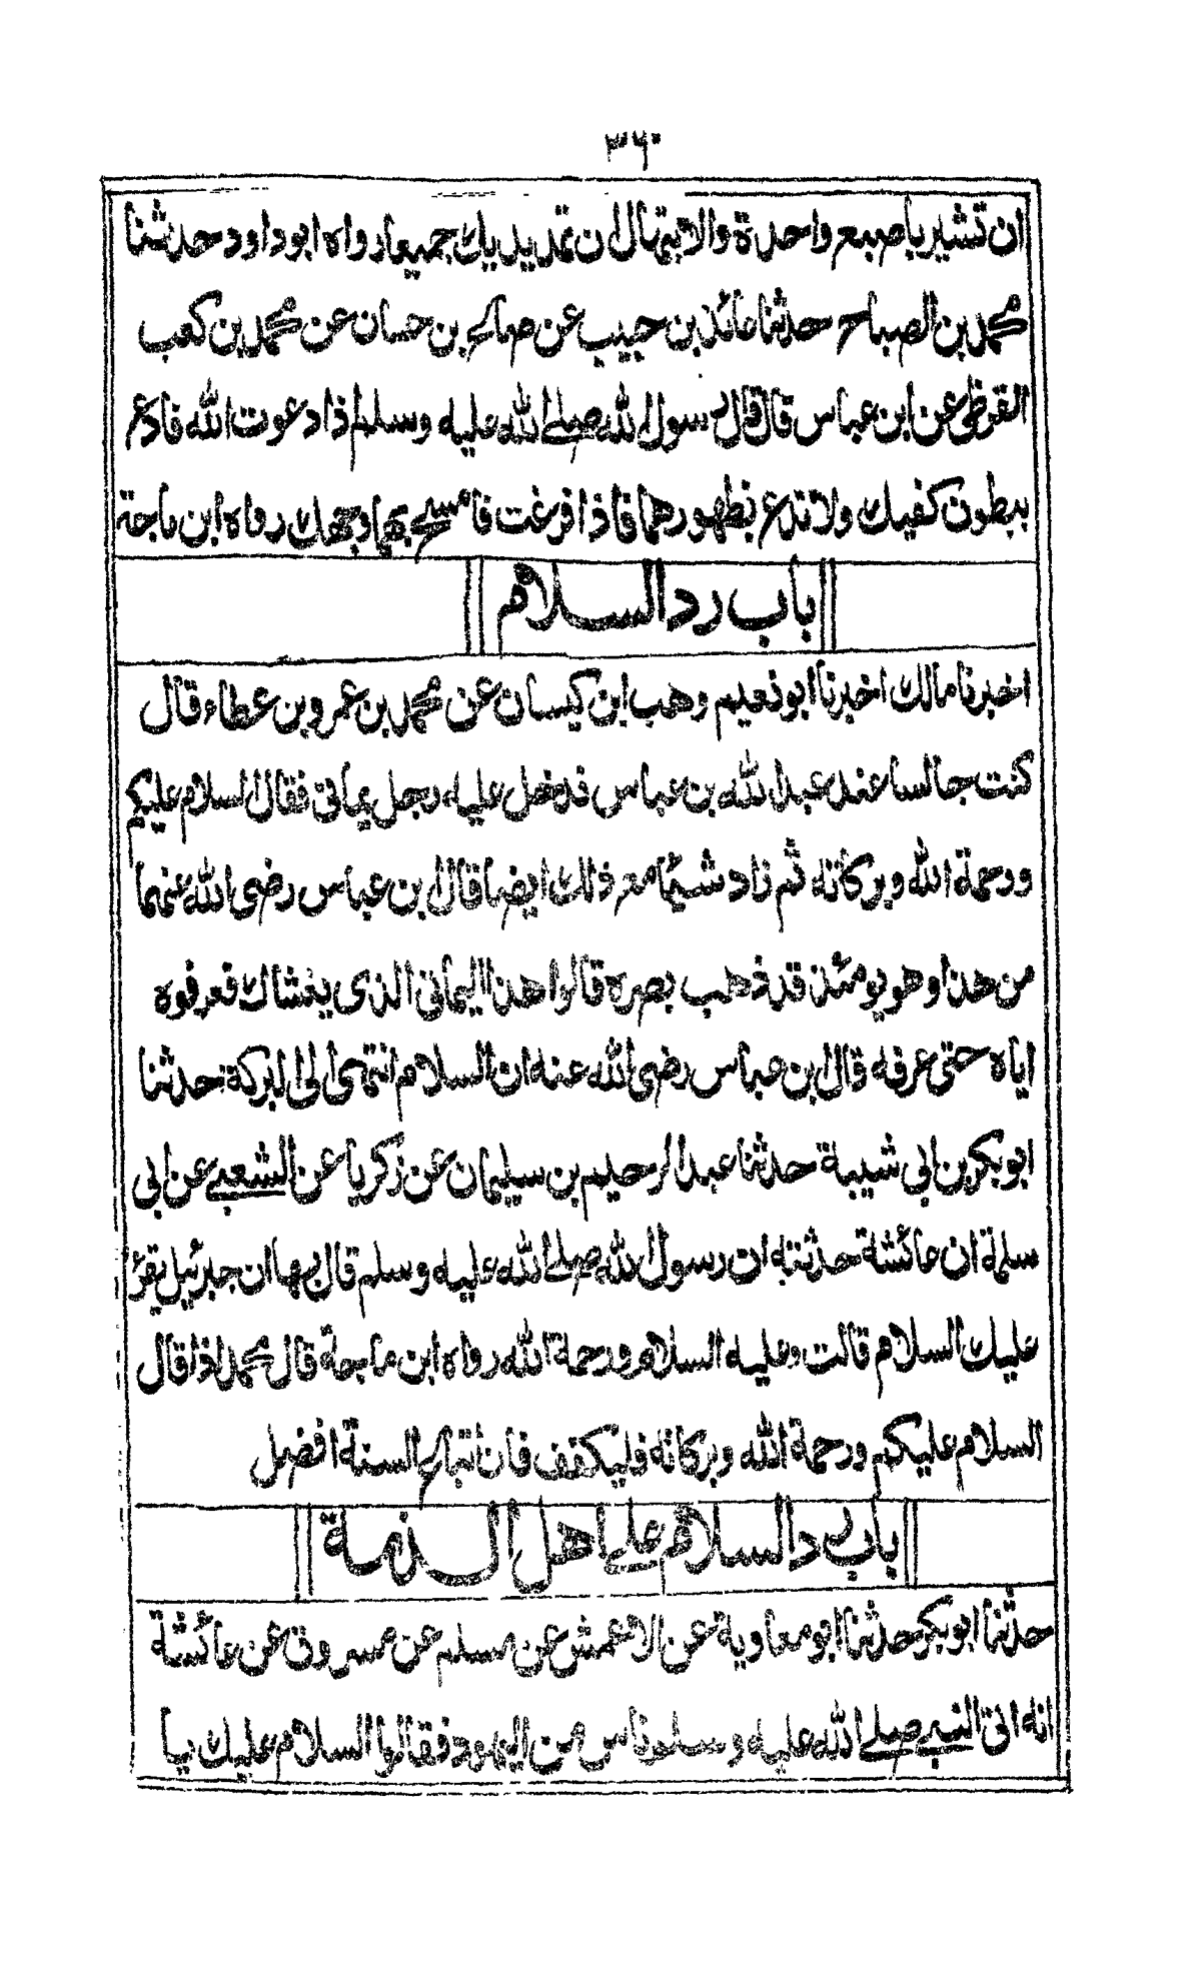 ۳۶۰
ان تشير باصبع واحدة والابتهال ان تمد يديك جميعا رواه ابو داود حدثنا
محمد بن الصباح حدثنا عائذ بن حبيب عن صالح بن حسان عن محمد بن كعب
القرظي عن ابن عباس قال قال رسول الله صلى الله عليه وسلم اذا دعوت الله فادع
ببطون كفيك ولا تدع بظهورهما فاذا فرغت فامسح بهما وجهك رواه ابن ماجة
باب رد السلام
اخبرنا مالك اخبرنا ابو نعيم وهب ابن كيسان عن محمد بن عمرو بن عطاء قال
كنت جالسا عند عبد الله بن عباس فدخل عليه رجل يماني فقال السلام عليكم
ورحمة الله وبركاته ثم زاد شيئا مع ذلك ايضا قال ابن عباس رضى الله عنهما
من هذا وهو يومئذ قد ذهب بصره قالوا هذا اليماني الذى يغشاك فعرفوه
اياه حتى عرفه قال بن عباس رضى الله عنه ان السلام انتهى الى البركة حدثنا
ابو بكر بن ابي شيبة حدثنا عبد الرحيم بن سليمان عن زكريا عن الشعبي عن ابي
سلمة ان عائشة حدثته ان رسول الله صلى الله عليه وسلم قال بها ان جبرئيل يقرأ
عليك السلام قالت وعليه السلام ورحمة الله رواه ابن ماجة قال محمد اذا قال
السلام عليكم ورحمة الله وبركاته فليكفف فان اتباع السنة افضل
باب رد السلام على اهل الذمة
حدثنا ابو بكر حدثنا ابو معاوية عن الاعمش عن مسلم عن مسروق عن عائشة
انه اتى النبي صلى الله عليه وسلم ناس من اليهود فقالوا السلام عليك يا